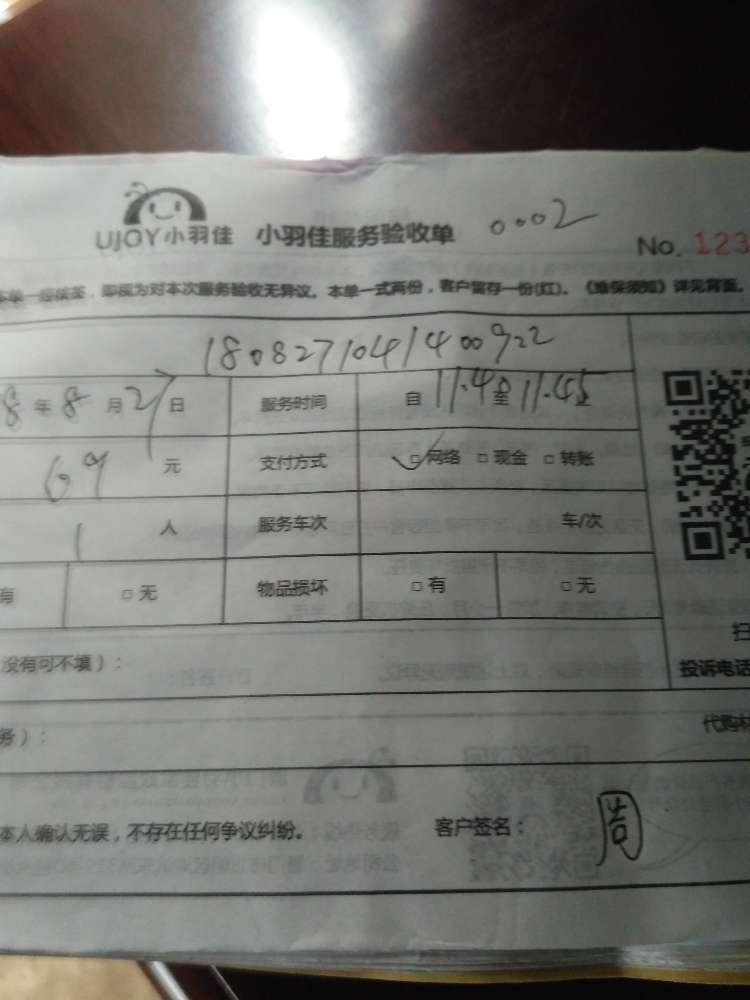 UJOY小羽佳 小羽佳服务验收单 0002
No. 123
本单一经核签，即视为对本次服务验收无异议。本单一式两份，客户留存一份(红)。《维保须知》详见背面。
1808271041400922
8 年 8 月 27 日 服务时间 自 11.40 至 11.45
69 元 支付方式 ✓□网络 □现金 □转账
1 人 服务车次 车/次
有 □无 物品损坏 □有 □无
扫
没有可不填）： 投诉电话
务）： 代购材
本人确认无误，不存在任何争议纠纷。 客户签名： 周